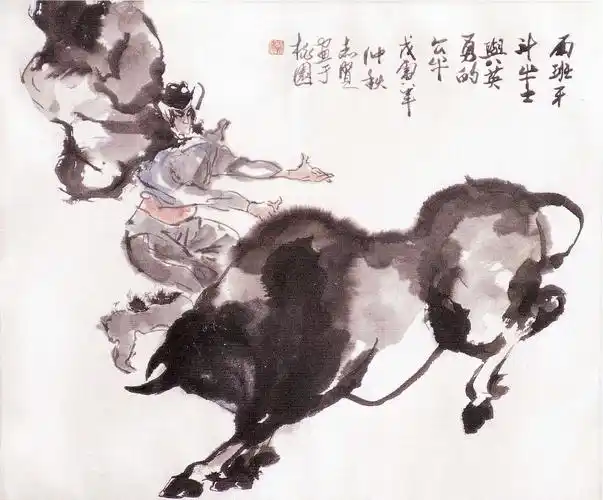 西班牙
斗牛士
與英
勇的
公牛
戊寅年
仲秋
畫于